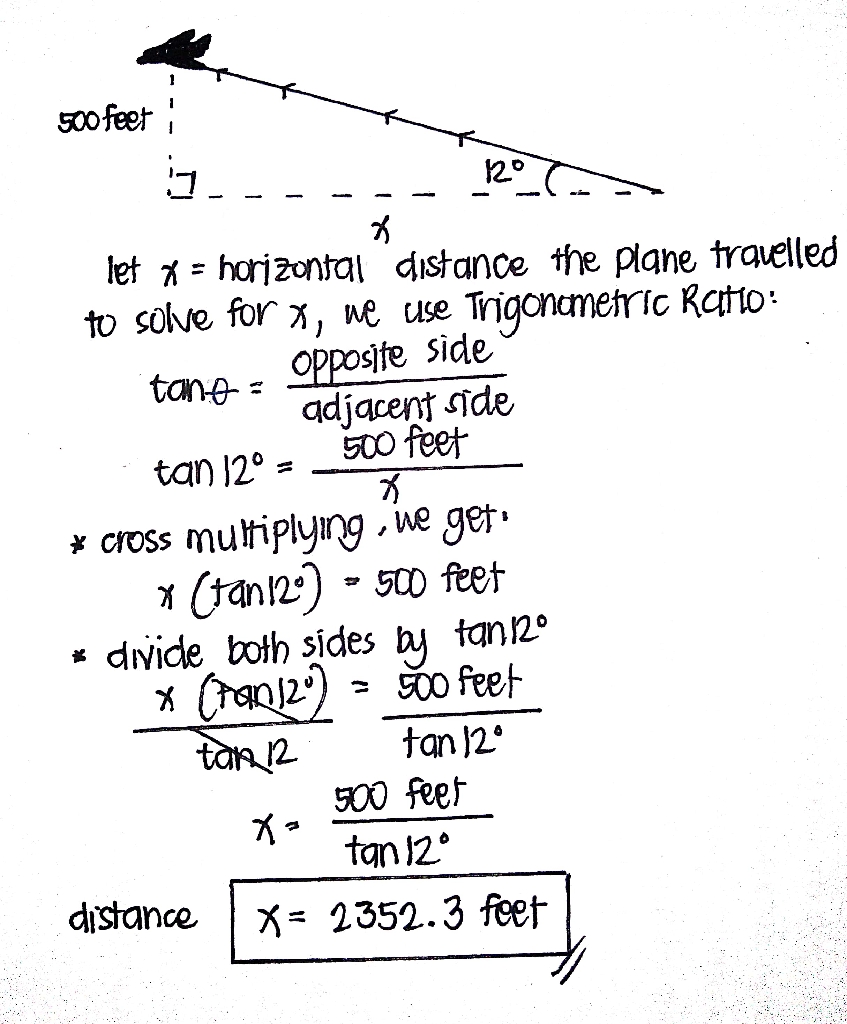 500 feet
12°
x
let x = horizontal distance the plane travelled
to solve for x, we use Trigonometric Ratio:
tan θ = opposite side / adjacent side
tan 12° = 500 feet / x
* cross multiplying, we get:
x (tan 12°) = 500 feet
* divide both sides by tan 12°
x (tan 12°) / tan 12 = 500 feet / tan 12°
x = 500 feet / tan 12°
distance x = 2352.3 feet